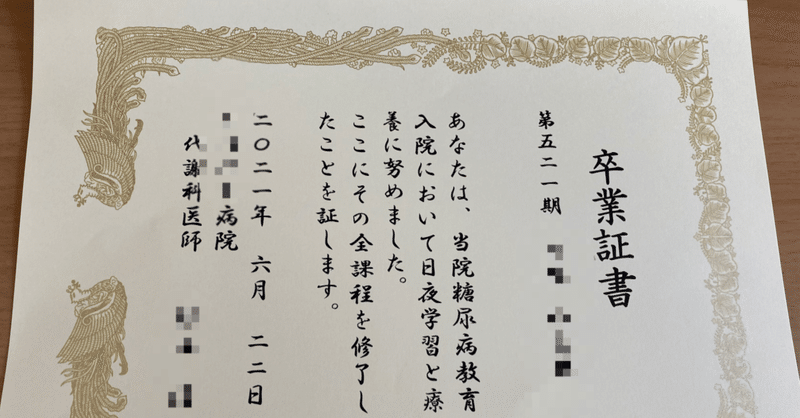 卒業証書
第五二一期
あなたは、当院糖尿病教育
入院において日夜学習と療
養に努めました。
ここにその全課程を修了し
たことを証します。
二〇二一年 六月 二二日
病院
代謝科医師